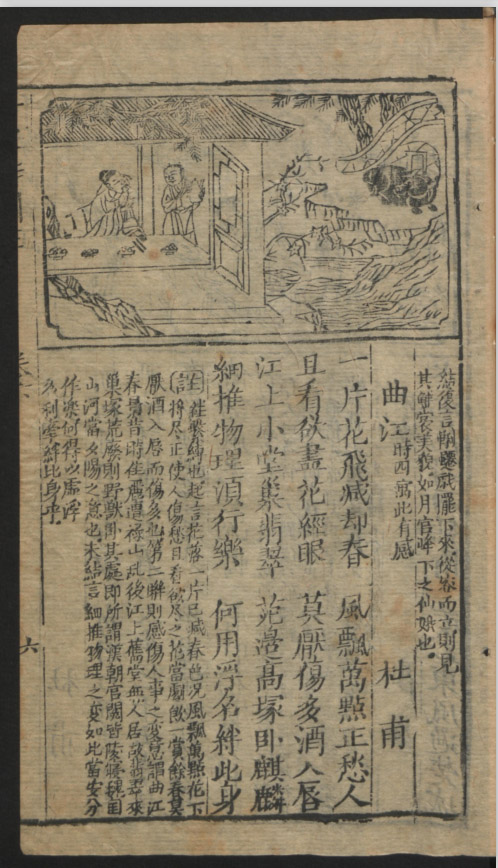 結後言鞦韆戲罷下來從容而立則見
其鮮裳美貌如月宮降下之仙娘也
曲江 時四寓此有感 杜甫
一片花飛減却春 風飄萬點正愁人
且看欲盡花經眼 莫厭傷多酒入唇
江上小堂巢翡翠 苑邊高塚卧麒麟
細推物理須行樂 何用浮名絆此身
註 絆繫也起言花落一片已減春色况風飄萬點花下
將尽正使人傷愁且看欲尽之花當劇飲一賞餘春莫
厭酒入唇而傷多也第二聯則感傷人事之変 曲江
春景昔時佳麗遭祿山乱後江上舊堂無人居故翡翠來
巢塚荒廢則野獸卧其處即所謂漢朝官闕皆陵
山河當夕陽之意也末結言細推物理之変如此當安分
作樂何得以虛浮
名利牽絆此身乎
六